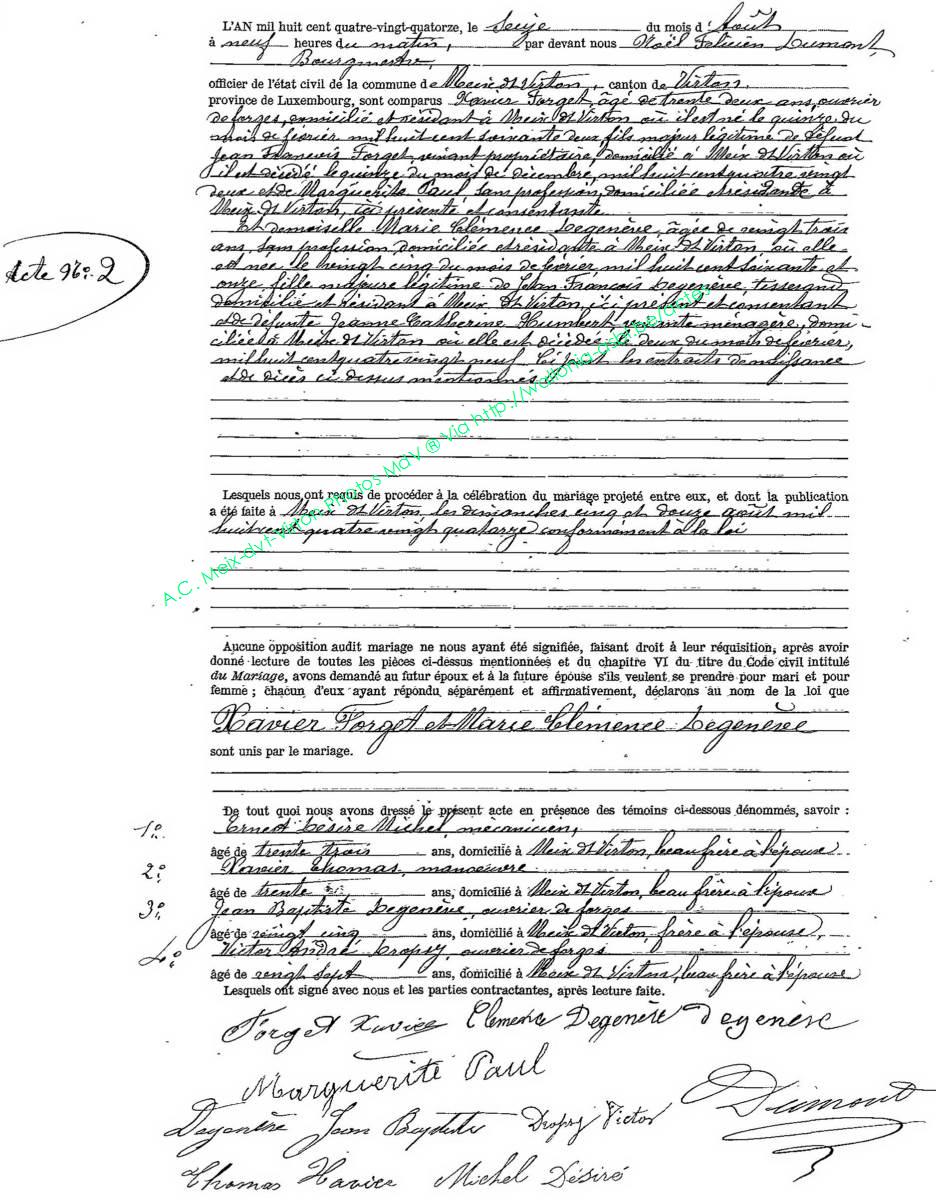 L'AN mil huit cent quatre-vingt-quatorze, le seize du mois d'Août
à neuf heures du matin, par devant nous Noël Felicien Dumont,
Bourgmestre,
officier de l'état civil de la commune de Meix Dt Virton, canton de Virton,
province de Luxembourg, sont comparus Xavier Forget, âgé de trente deux ans, ouvrier
de forges, domicilié et résidant à Meix Dt Virton où il est né le quinze du
mois de février mil huit cent soixante deux, fils majeur légitime de défunt
Jean François Forget, vivant propriétaire, domicilié à Meix Dt Virton où
il est décédé le quinze du mois de décembre, mil huit cent quatre vingt
deux et de Marguerite Paul, sans profession, domiciliée et résidante à
Meix Dt Virton, ici présente et consentante
Et demoiselle Marie Clémence Degenève, âgée de vingt trois
ans, sans profession, domiciliée et résidante à Meix Dt Virton, où elle
est née le vingt cinq du mois de février, mil huit cent soixante et
onze, fille majeure légitime de Jean François Degenève, tisserand
domicilié et résidant à Meix Dt Virton, ici présent et consentant
et de défunte Jeanne Catherine Humbert, vivante ménagère, domi-
ciliée à Meix Dt Virton où elle est décédée le deux du mois de février,
mil huit cent quatre vingt neuf. Ici sont les extraits de naissance
et de décès ci dessus mentionnés
Acte No: 2
Lesquels nous ont requis de procéder à la célébration du mariage projeté entre eux, et dont la publication
a été faite à Meix Dt Virton, les dimanches cinq et douze août mil
huit cent quatre vingt quatorze conformément à la loi
A.C. Meix-dvt-Virton Photos MdV ® Via http://wallonia-asbl.be/actes
Aucune opposition audit mariage ne nous ayant été signifiée, faisant droit à leur réquisition, après avoir
donné lecture de toutes les pièces ci-dessus mentionnées et du chapitre VI du titre du Code civil intitulé
du Mariage, avons demandé au futur époux et à la future épouse s'ils veulent se prendre pour mari et pour
femme ; chacun d'eux ayant répondu séparément et affirmativement, déclarons au nom de la loi que
Xavier Forget et Marie Clémence Degenève
sont unis par le mariage.
De tout quoi nous avons dressé le présent acte en présence des témoins ci-dessous dénommés, savoir :
1o. Ernest Désiré Michel, mécanicien,
âgé de trente trois ans, domicilié à Meix Dt Virton, beau frère à l'épouse
2o. Xavier Thomas, manoeuvre
âgé de trente ans, domicilié à Meix Dt Virton, beau frère à l'époux
3o. Jean Baptiste Degenève, ouvrier de forges
âgé de vingt cinq ans, domicilié à Meix Dt Virton, frère à l'épouse,
4o. Victor André Dropsy, ouvrier de forges
âgé de vingt sept ans, domicilié à Meix Dt Virton, beau frère à l'épouse
Lesquels ont signé avec nous et les parties contractantes, après lecture faite.
Forget Xavier Clemence Degenève Degenève
Marguerite Paul
Degenève Jean Baptiste Dropsy Victor Dumont
Thomas Xavier Michel Désiré